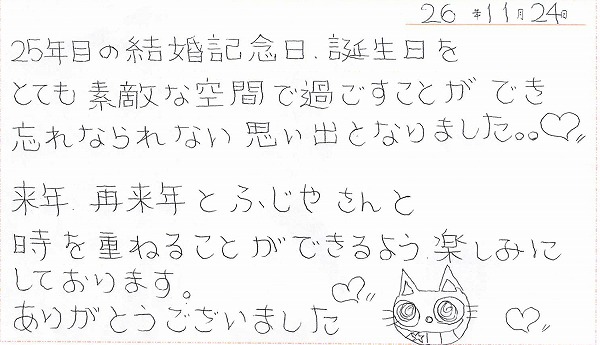 26年11月24日
25年目の結婚記念日、誕生日を
とても素敵な空間で過ごすことができ
忘れなられない思い出となりました。。
来年、再来年とふじやさんと
時を重ねることができるよう、楽しみに
しております。
ありがとうございました